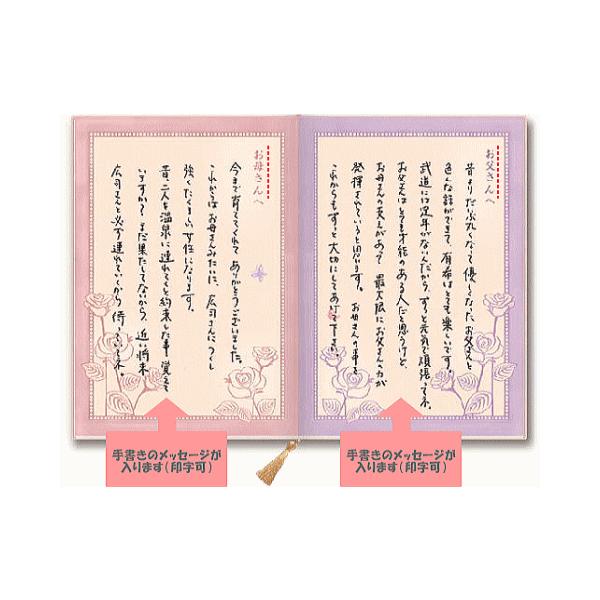 お父さんへ
昔よりだいぶ丸くなって優しくなったお父さんと
色んな話ができて、有希はとても楽しいです。
武道には定年がないんだから、ずっと元気で頑張ってネ。
お父さんはとても才能のある人だと思うけど、
お母さんの支えがあって最大限にお父さんの力が
発揮されていると思います。お母さんの事を
これからもずっと大切にしてあげて下さい。
お母さんへ
今まで育ててくれてありがとうございました。
これからはお母さんみたいに、広司さんにつくし
強くたくましい女性になります。
昔、二人を温泉に連れてくと約束した事覚えて
いますか？まだ果たしてないから、近い将来
広司さんと必ず連れていくから待っていてネ。
手書きのメッセージが
入ります(印字可)
手書きのメッセージが
入ります(印字可)